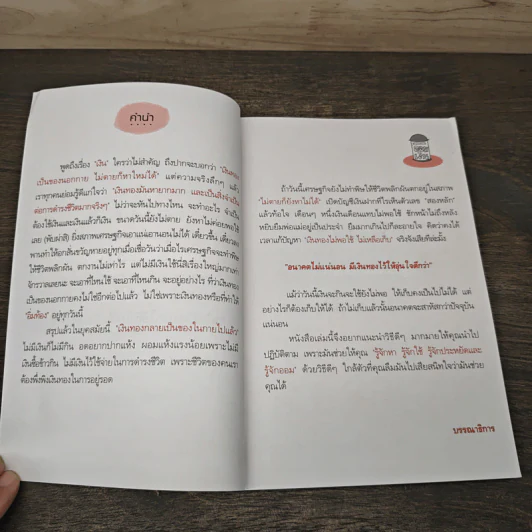 คำนำ
พูดถึงเรื่อง 'เงิน' ใครว่าไม่สำคัญ ถึงปากจะบอกว่า 'เงินทอง
เป็นของนอกกาย ไม่ตายก็หาใหม่ได้' แต่ความจริงลึกๆ แล้ว
เราทุกคนย่อมรู้ดีแก่ใจว่า 'เงินทองมันหายากมาก และเป็นสิ่งจำเป็น
ต่อการดำรงชีวิตมากจริงๆ' ไม่ว่าจะหันไปทางไหน จะทำอะไร จำเป็น
ต้องใช้เงินและเงินแล้วก็เงิน ขนาดวันนี้ยังไม่ตาย ยังหาไม่ค่อยพอใช้
เลย (พับผ่าสิ) ยิ่งสภาพเศรษฐกิจเอาแน่เอานอนไม่ได้ เดี๋ยวขึ้น เดี๋ยวลง
พานทำให้อกสั่นขวัญหายอยู่ทุกเมื่อเชื่อวันว่าเมื่อไรเศรษฐกิจจะทำพิษ
ให้ชีวิตพลิกผัน ตกงานไม่เท่าไร แต่ไม่มีเงินใช้นี่สิเรื่องใหญ่มากเท่า
จักรวาลเลยนะ จะเอาที่ไหนใช้ จะเอาที่ไหนกิน จะอยู่อย่างไร ที่ว่าเงินทอง
เป็นของนอกกายคงไม่ใช่อีกต่อไปแล้ว ไม่ใช่เพราะเงินทองหรือที่ทำให้
'อิ่มท้อง' อยู่ทุกวันนี้
สรุปแล้วในยุคสมัยนี้ 'เงินทองกลายเป็นของในกายไปแล้ว'
ไม่มีเงินก็ไม่มีกิน อดอยากปากแห้ง ผอมแห้งแรงน้อยเพราะไม่มี
เงินซื้อข้าวกิน ไม่มีเงินไว้ใช้จ่ายในการดำรงชีวิต เพราะชีวิตของคนเรา
ต้องพึ่งพิงเงินทองในการอยู่รอด
ถ้าวันนี้เศรษฐกิจยังไม่ทำพิษให้ชีวิตพลิกผันตกอยู่ในสภาพ
'ไม่ตายก็ยังหาไม่ได้' เปิดบัญชีเงินฝากทีไรเห็นตัวเลข 'สองหลัก'
แล้วท้อใจ เดือนๆ หนึ่งเงินเดือนแทบไม่พอใช้ ชักหน้าไม่ถึงหลัง
หยิบยืมพ่อแม่อยู่เป็นประจำ ยืมมากเกินไปก็ละอายใจ คิดว่าคงได้
เวลาแก้ปัญหา 'เงินทองไม่พอใช้ ไม่เหลือเก็บ' จริงจังเสียทีล่ะมั้ง
"อนาคตไม่แน่นอน มีเงินทองไว้ให้อุ่นใจดีกว่า"
แม้ว่าวันนี้เงินจะกินจะใช้ยังไม่พอ ให้เก็บคงเป็นไปไม่ได้ แต่
อย่างไรก็ต้องเก็บให้ได้ ถ้าไม่เก็บแล้วนั้นอนาคตจะสาหัสกว่าปัจจุบัน
แน่นอน
หนังสือเล่มนี้จึงอยากแนะนำวิธีดีๆ มากมายให้คุณนำไป
ปฏิบัติตาม เพราะมันช่วยให้คุณ 'รู้จักหา รู้จักใช้ รู้จักประหยัดและ
รู้จักออม' ด้วยวิธีดีๆ ใกล้ตัวที่คุณลืมมันไปเสียสนิทใจว่ามันช่วย
คุณได้
บรรณาธิการ